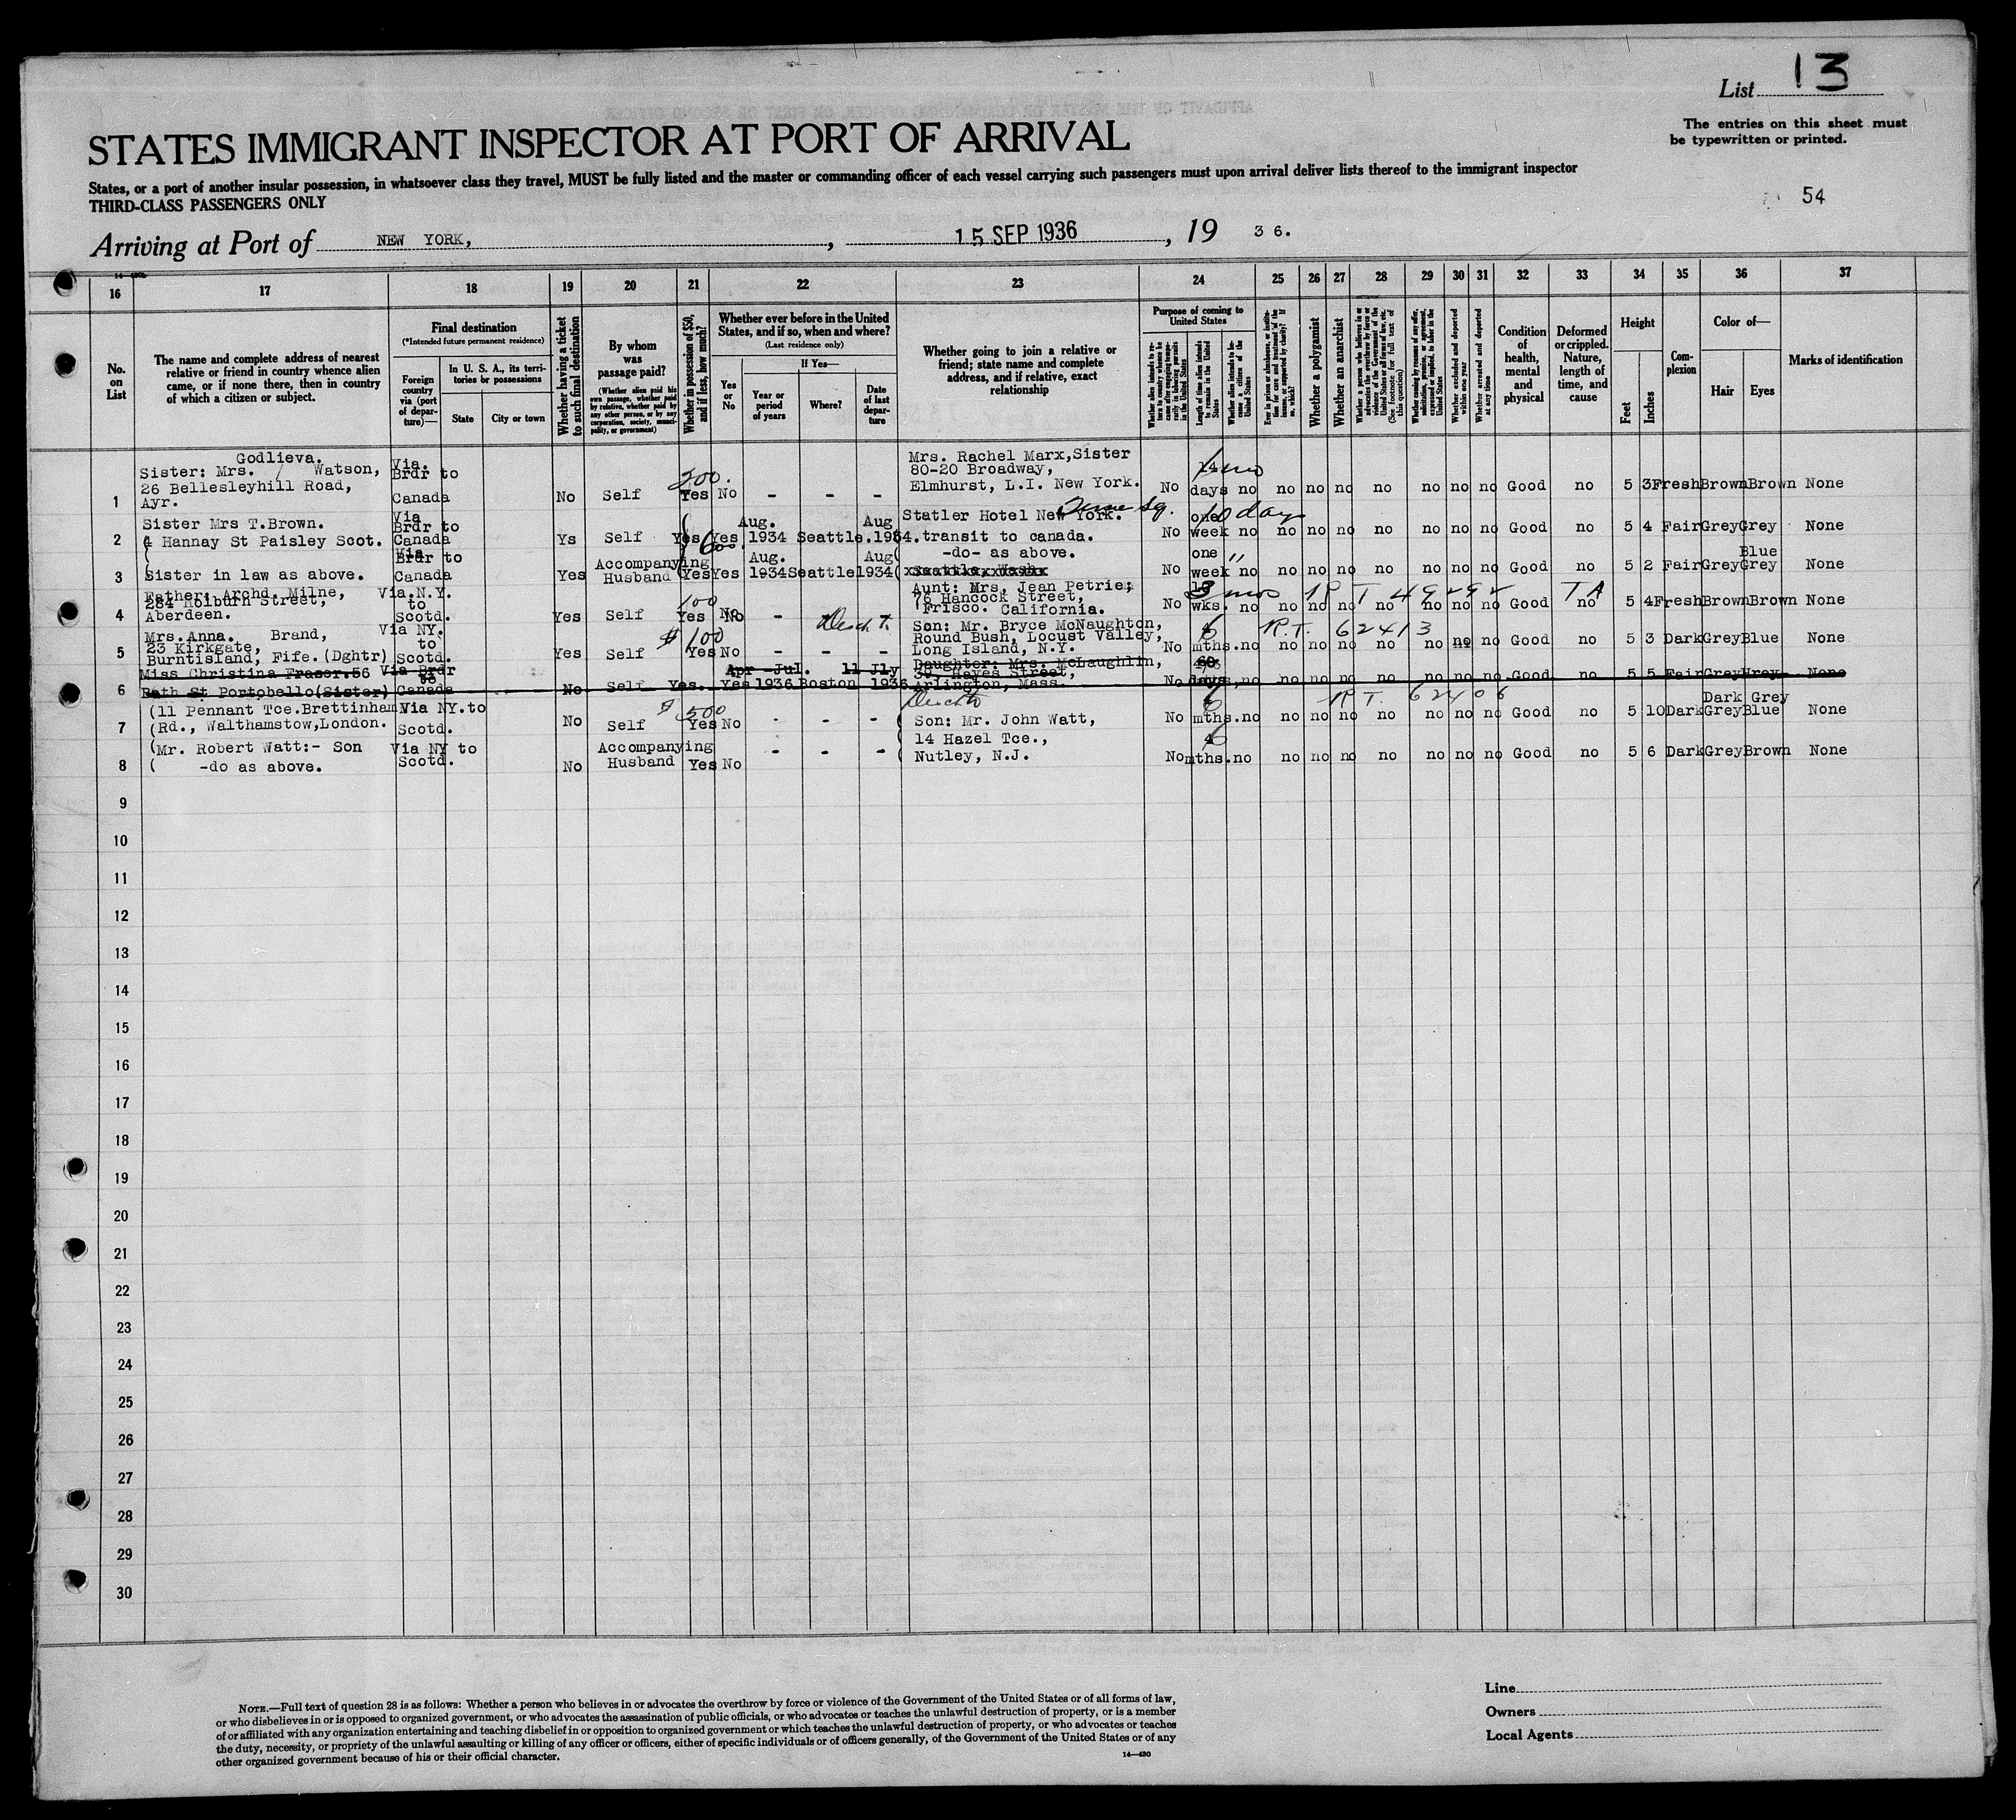 List 13
The entries on this sheet must
be typewritten or printed.
STATES IMMIGRANT INSPECTOR AT PORT OF ARRIVAL
States, or a port of another insular possession, in whatsoever class they travel, MUST be fully listed and the master or commanding officer of each vessel carrying such passengers must upon arrival deliver lists thereof to the immigrant inspector
THIRD-CLASS PASSENGERS ONLY
54
Arriving at Port of NEW YORK, , 15 SEP 1936 , 19 3 6.
16 17 18 19 20 21 22 23 24 25 26 27 28 29 30 31 32 33 34 35 36 37
No. on List
The name and complete address of nearest relative or friend in country whence alien came, or if none there, then in country of which a citizen or subject.
Final destination
(*Intended future permanent residence)
Foreign country via (port of departure)—
In U. S. A., its territories or possessions
State
City or town
Whether having a ticket to such final destination
By whom was passage paid?
(Whether alien paid his own passage, whether paid by relative, whether paid by any other person, or by any corporation, society, municipality, or government)
Whether in possession of $50, and if less, how much?
Whether ever before in the United States, and if so, when and where?
(Last residence only)
Yes or No
If Yes—
Year or period of years
Where?
Date of last departure
Whether going to join a relative or friend; state name and complete address, and if relative, exact relationship
Purpose of coming to United States
Whether alien intends to return to country whence he came after engaging temporarily in laboring pursuits in the United States
Length of time alien intends to remain in the United States
Whether alien intends to become a citizen of the United States
Ever in prison or almshouse, or institution for care and treatment of the insane, or supported by charity? If so, which?
Whether a polygamist
Whether an anarchist
Whether a person who believes in or advocates the overthrow by force or violence of the Government of the United States or all forms of law, etc. (See footnote for full text of this question)
Whether coming by reasons of any offer, solicitation, promise, or agreement, expressed or implied, to labor in the United States
Whether excluded and deported within one year
Whether arrested and deported at any time
Condition of health, mental and physical
Deformed or crippled. Nature, length of time, and cause
Height
Feet
Inches
Complexion
Color of—
Hair
Eyes
Marks of identification
Godlieva.
1 Sister: Mrs. / Watson, 26 Bellesleyhill Road, Ayr. Via. Brdr to Canada No Self 200. Yes No - - - Mrs. Rachel Marx,Sister 80-20 Broadway, Elmhurst, L.I. New York. No days no no no no no no no no Good no 5 3 Fresh Brown Brown None
2 Sister Mrs T.Brown. 4 Hannay St Paisley Scot. Via Brdr to Canada Ys Self Yes 600. Yes Aug. 1934 Seattle. Aug 1934. Statler Hotel New York. transit to canada. No one week 10 days no no no no no no no no Good no 5 4 Fair Grey Grey None
3 Sister in law as above. Via Brdr to Canada Yes Accompanying Husband Yes Yes Aug. 1934 Seattle Aug 1934 -do- as above. No one week " no no no no no no no no Good no 5 2 Fair Grey Blue Grey None
4 Father: Archd. Milne, 284 Holburn Street, Aberdeen. Via.N.Y. to Scotd. Yes Self 100 Yes No - Aunt: Mrs. Jean Petrie; 76 Hancock Street, Frisco. California. No wks. 3 mos no no no no no no no no Good no 5 4 Fresh Brown Brown None
5 Mrs.Anna. Brand, 23 Kirkgate, Burntisland, Fife.(Dghtr) Via NY. to Scotd. Yes Self $100 Yes No - - - Son: Mr. Bryce McNaughton, Round Bush, Locust Valley, Long Island, N.Y. No 6 mths. no R.T. 62413 no no no no no no no Good no 5 3 Dark Grey Blue None
6 Miss Christina Fraser.56 Bath St Portobello(Sister) Via Brdr to Canada No Self Yes. Yes Apr -Jul. 1936 Boston 11 Jly 1936 Daughter: Mrs. McLaughlin, 30 Hayes Street, Arlington, Mass. No 60 days, no no no no no no no no Good no 5 5 Fair Grey Hrey None
7 (11 Pennant Tce.Brettinham (Rd., Walthamstow,London. Via NY.to Scotd. No Self $500 Yes No - - - Son: Mr. John Watt, No 6 mths. no R.T. 62406 no no no no no no no Good no 5 10 Dark Dark Grey Grey Blue None
8 (Mr. Robert Watt:- Son ( -do as above. Via NY to Scotd. No Accompanying Husband Yes No - - - 14 Hazel Tce., Nutley, N.J. No 6 mths. no no no no no no no no Good no 5 6 Dark Grey Brown None
9
10
11
12
13
14
15
16
17
18
19
20
21
22
23
24
25
26
27
28
29
30
NOTE.—Full text of question 28 is as follows: Whether a person who believes in or advocates the overthrow by force or violence of the Government of the United States or of all forms of law,
or who disbelieves in or is opposed to organized government, or who advocates the assassination of public officials, or who advocates or teaches the unlawful destruction of property, or is a member
of or affiliated with any organization entertaining and teaching disbelief in or opposition to organized government or which teaches the unlawful destruction of property, or who advocates or teaches
the duty, necessity, or propriety of the unlawful assaulting or killing of any officer or officers, either of specific individuals or of officers generally, of the Government of the United States or of any
other organized government because of his or their official character.
14—430
Line
Owners
Local Agents